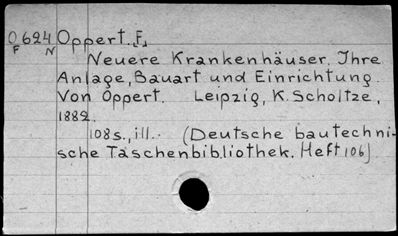 O 624 Oppert. [F.]
F N
Neuere Krankenhäuser. Ihre
Anlage, Bauart und Einrichtung.
Von Oppert. Leipzig, K. Scholtze,
1882.
108 s., ill. (Deutsche bautechni-
sche Taschenbibliothek. Heft 106).